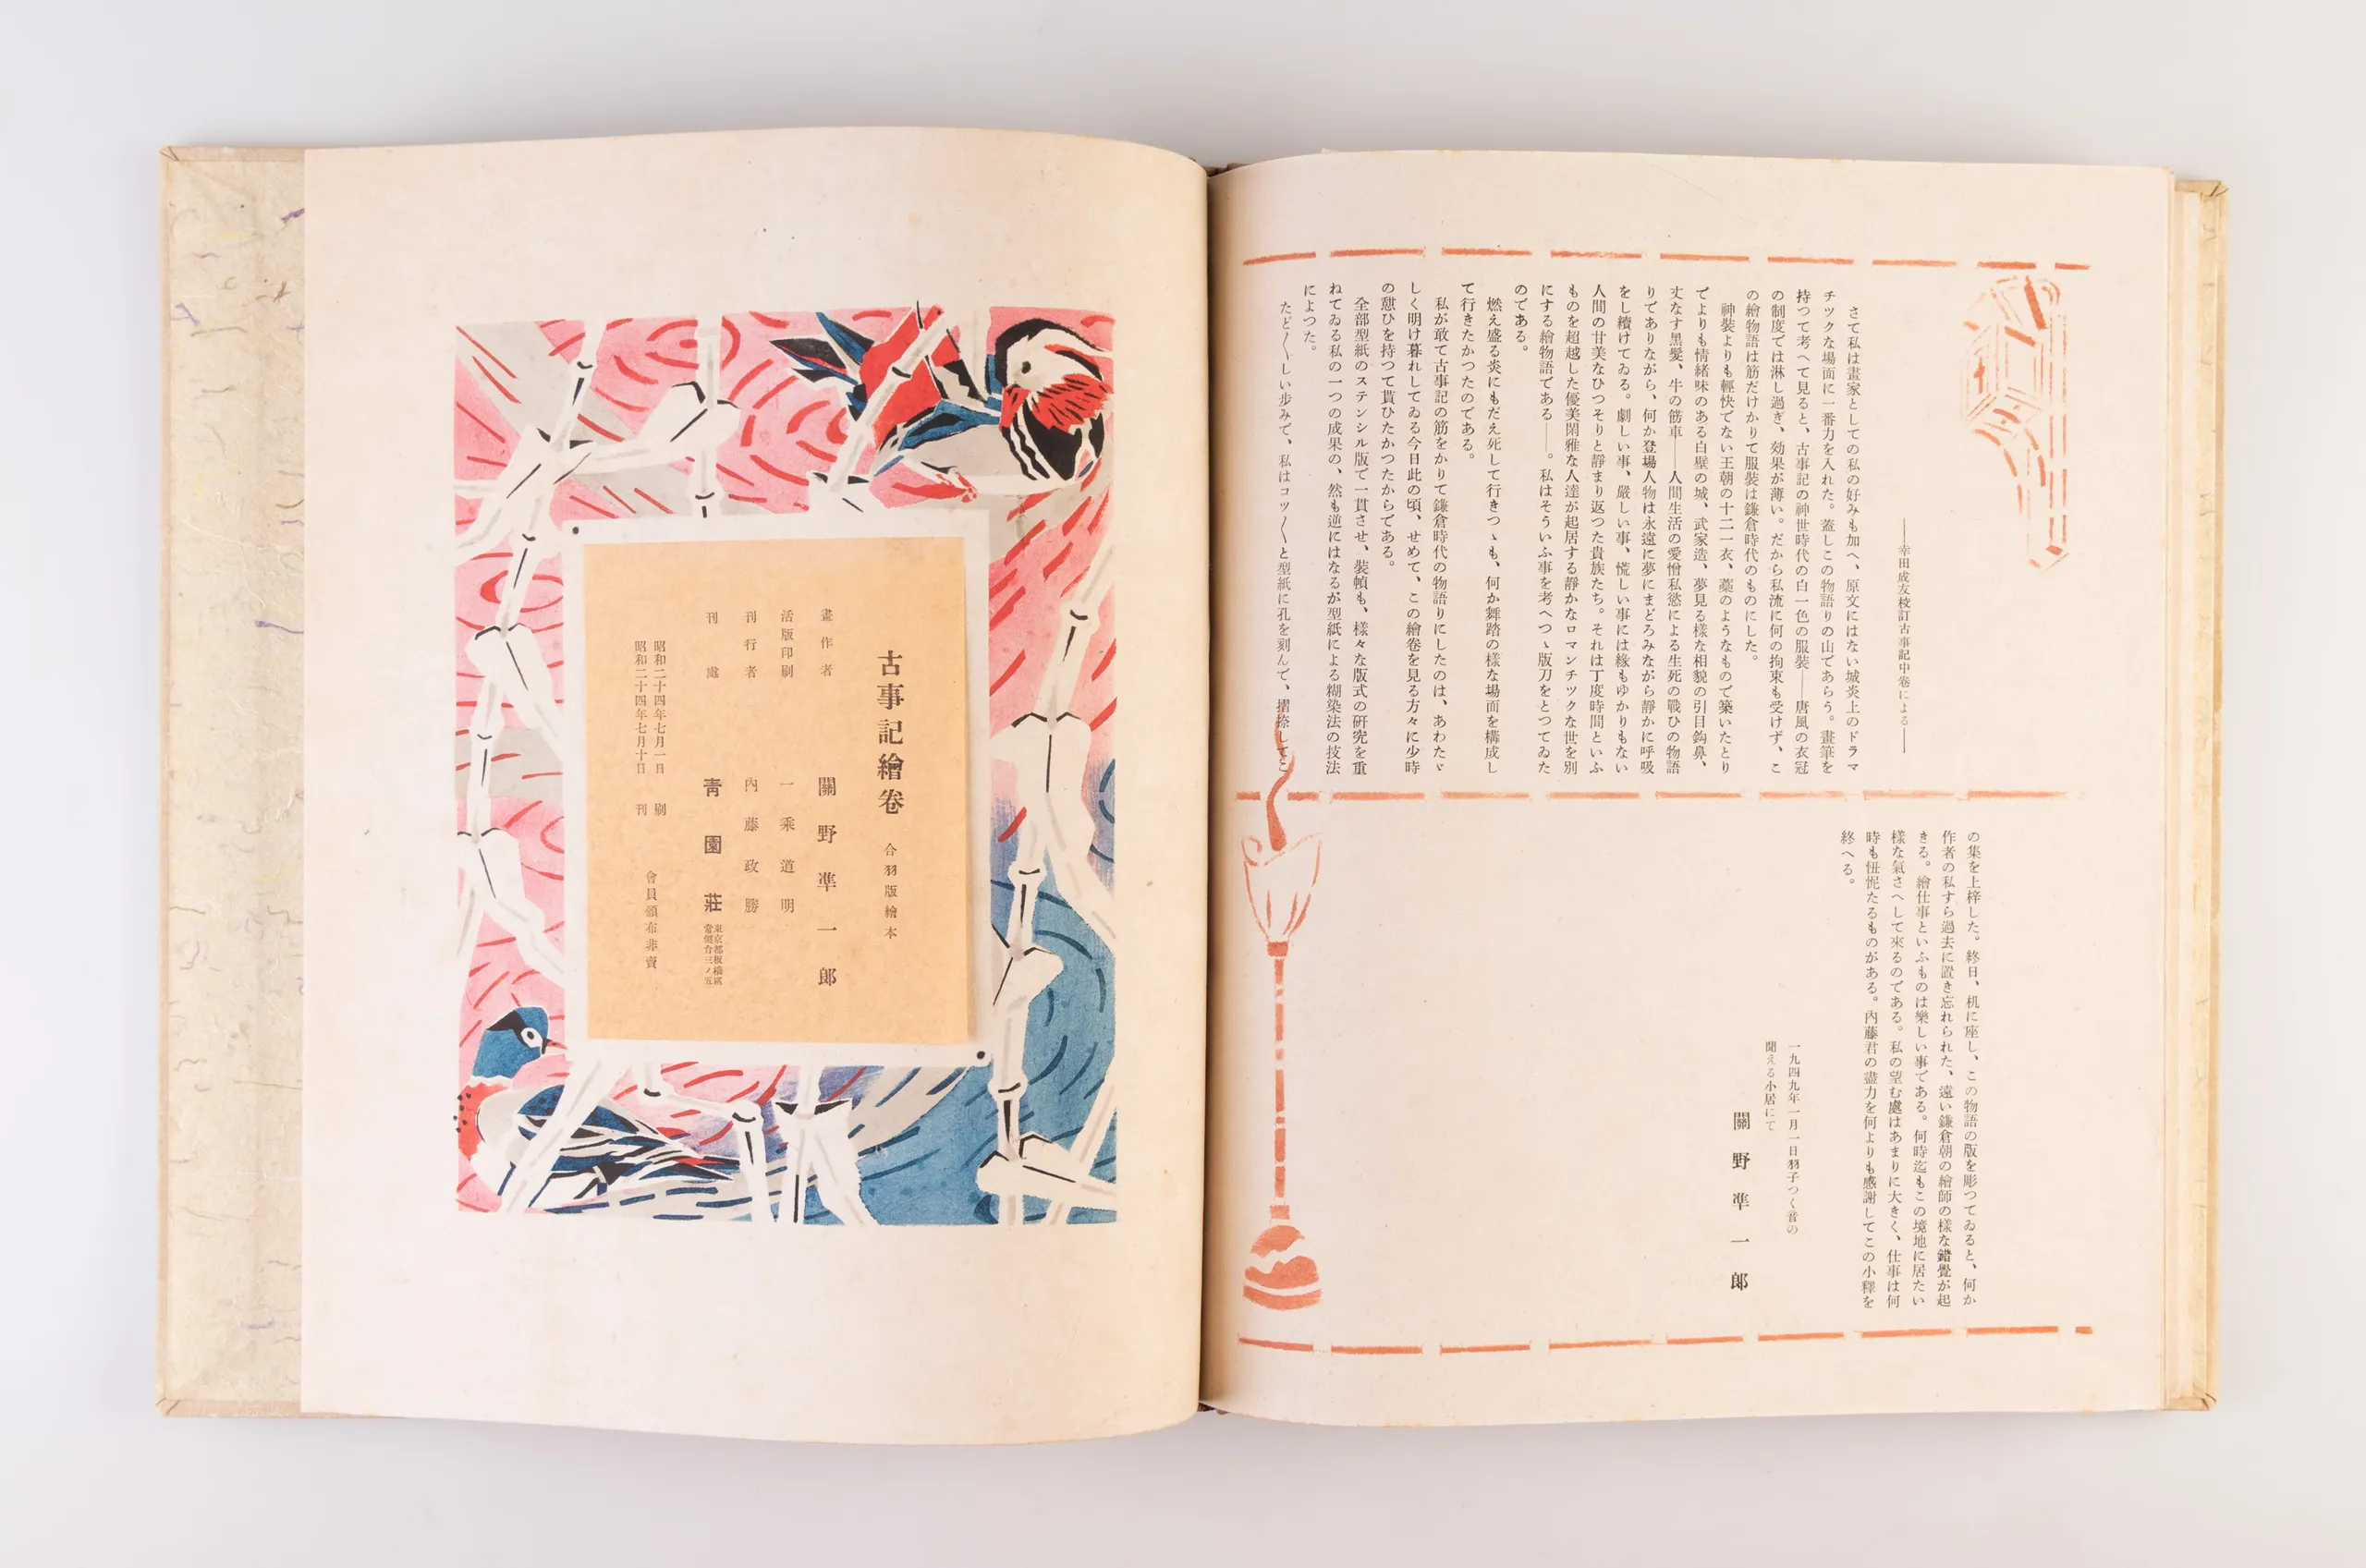 ――幸田成友校訂古事記中卷による――
さて私は畫家としての私の好みも加へ、原文にはない城炎上のドラマ
チックな場面に一番力を入れた。蓋しこの物語りの山であらう。畫筆を
持つて考へて見ると、古事記の神世時代の白一色の服裝――唐風の衣冠
の制度では淋し過ぎ、効果が薄い。だから私流に何の拘束も受けず、こ
の繪物語は筋だけかりて服裝は鎌倉時代のものにした。
神裝よりも輕快でない王朝の十二一衣、藁のようなもので築いたとり
でよりも情緒味のある白壁の城、武家造、夢見る樣な相貌の引目鈎鼻、
丈なす黑髮、牛の筋車――人間生活の愛憎私慾による生死の戰ひの物語
りでありながら、何か登場人物は永遠に夢にまどろみながら靜かに呼吸
をし續けてゐる。劇しい事、嚴しい事、慌しい事には緣もゆかりもない
人間の甘美なひつそりと靜まり返つた貴族たち。それは丁度時間といふ
ものを超越した優美閑雅な人達が起居する靜かなロマンチックな世を別
にする繪物語である――。私はそういふ事を考へつゝ版刀をとつてゐた
のである。
燃え盛る炎にもだえ死して行きつゝも、何か舞踏の樣な場面を構成し
て行きたかつたのである。
私が敢て古事記の筋をかりて鎌倉時代の物語りにしたのは、あわたゞ
しく明け暮れしてゐる今日此の頃、せめて、この繪卷を見る方々に少時
の憩ひを持つて貰ひたかつたからである。
全部型紙のステンシル版で一貫させ、裝幀も、樣々な版式の硏究を重
ねてゐる私の一つの成果の、然も逆にはなるが型紙による糊染法の技法
によつた。
たど〱しい步みで、私はコツ〱と型紙に孔を刻んで、摺捺してこ
の集を上梓した。終日、机に座し、この物語の版を彫つてゐると、何か
作者の私すら過去に置き忘れられた、遠い鎌倉朝の繪師の樣な錯覺が起
きる。繪仕事といふものは樂しい事である。何時迄もこの境地に居たい
樣な氣さへして來るのである。私の望む處はあまりに大きく、仕事は何
時も忸怩たるものがある。內藤君の盡力を何よりも感謝してこの小釋を
終へる。
一九四九年一月一日羽子つく音の
聞える小居にて
關野準一郞
古事記繪卷 合羽版繪本
畫作者 關野準一郞
活版印刷 一乘道明
刊行者 內藤政勝
刊處 靑園莊 東京都板橋區
常盤台三ノ五
昭和二十四年七月一日 刷
昭和二十四年七月十日 刊
會員頒布非賣